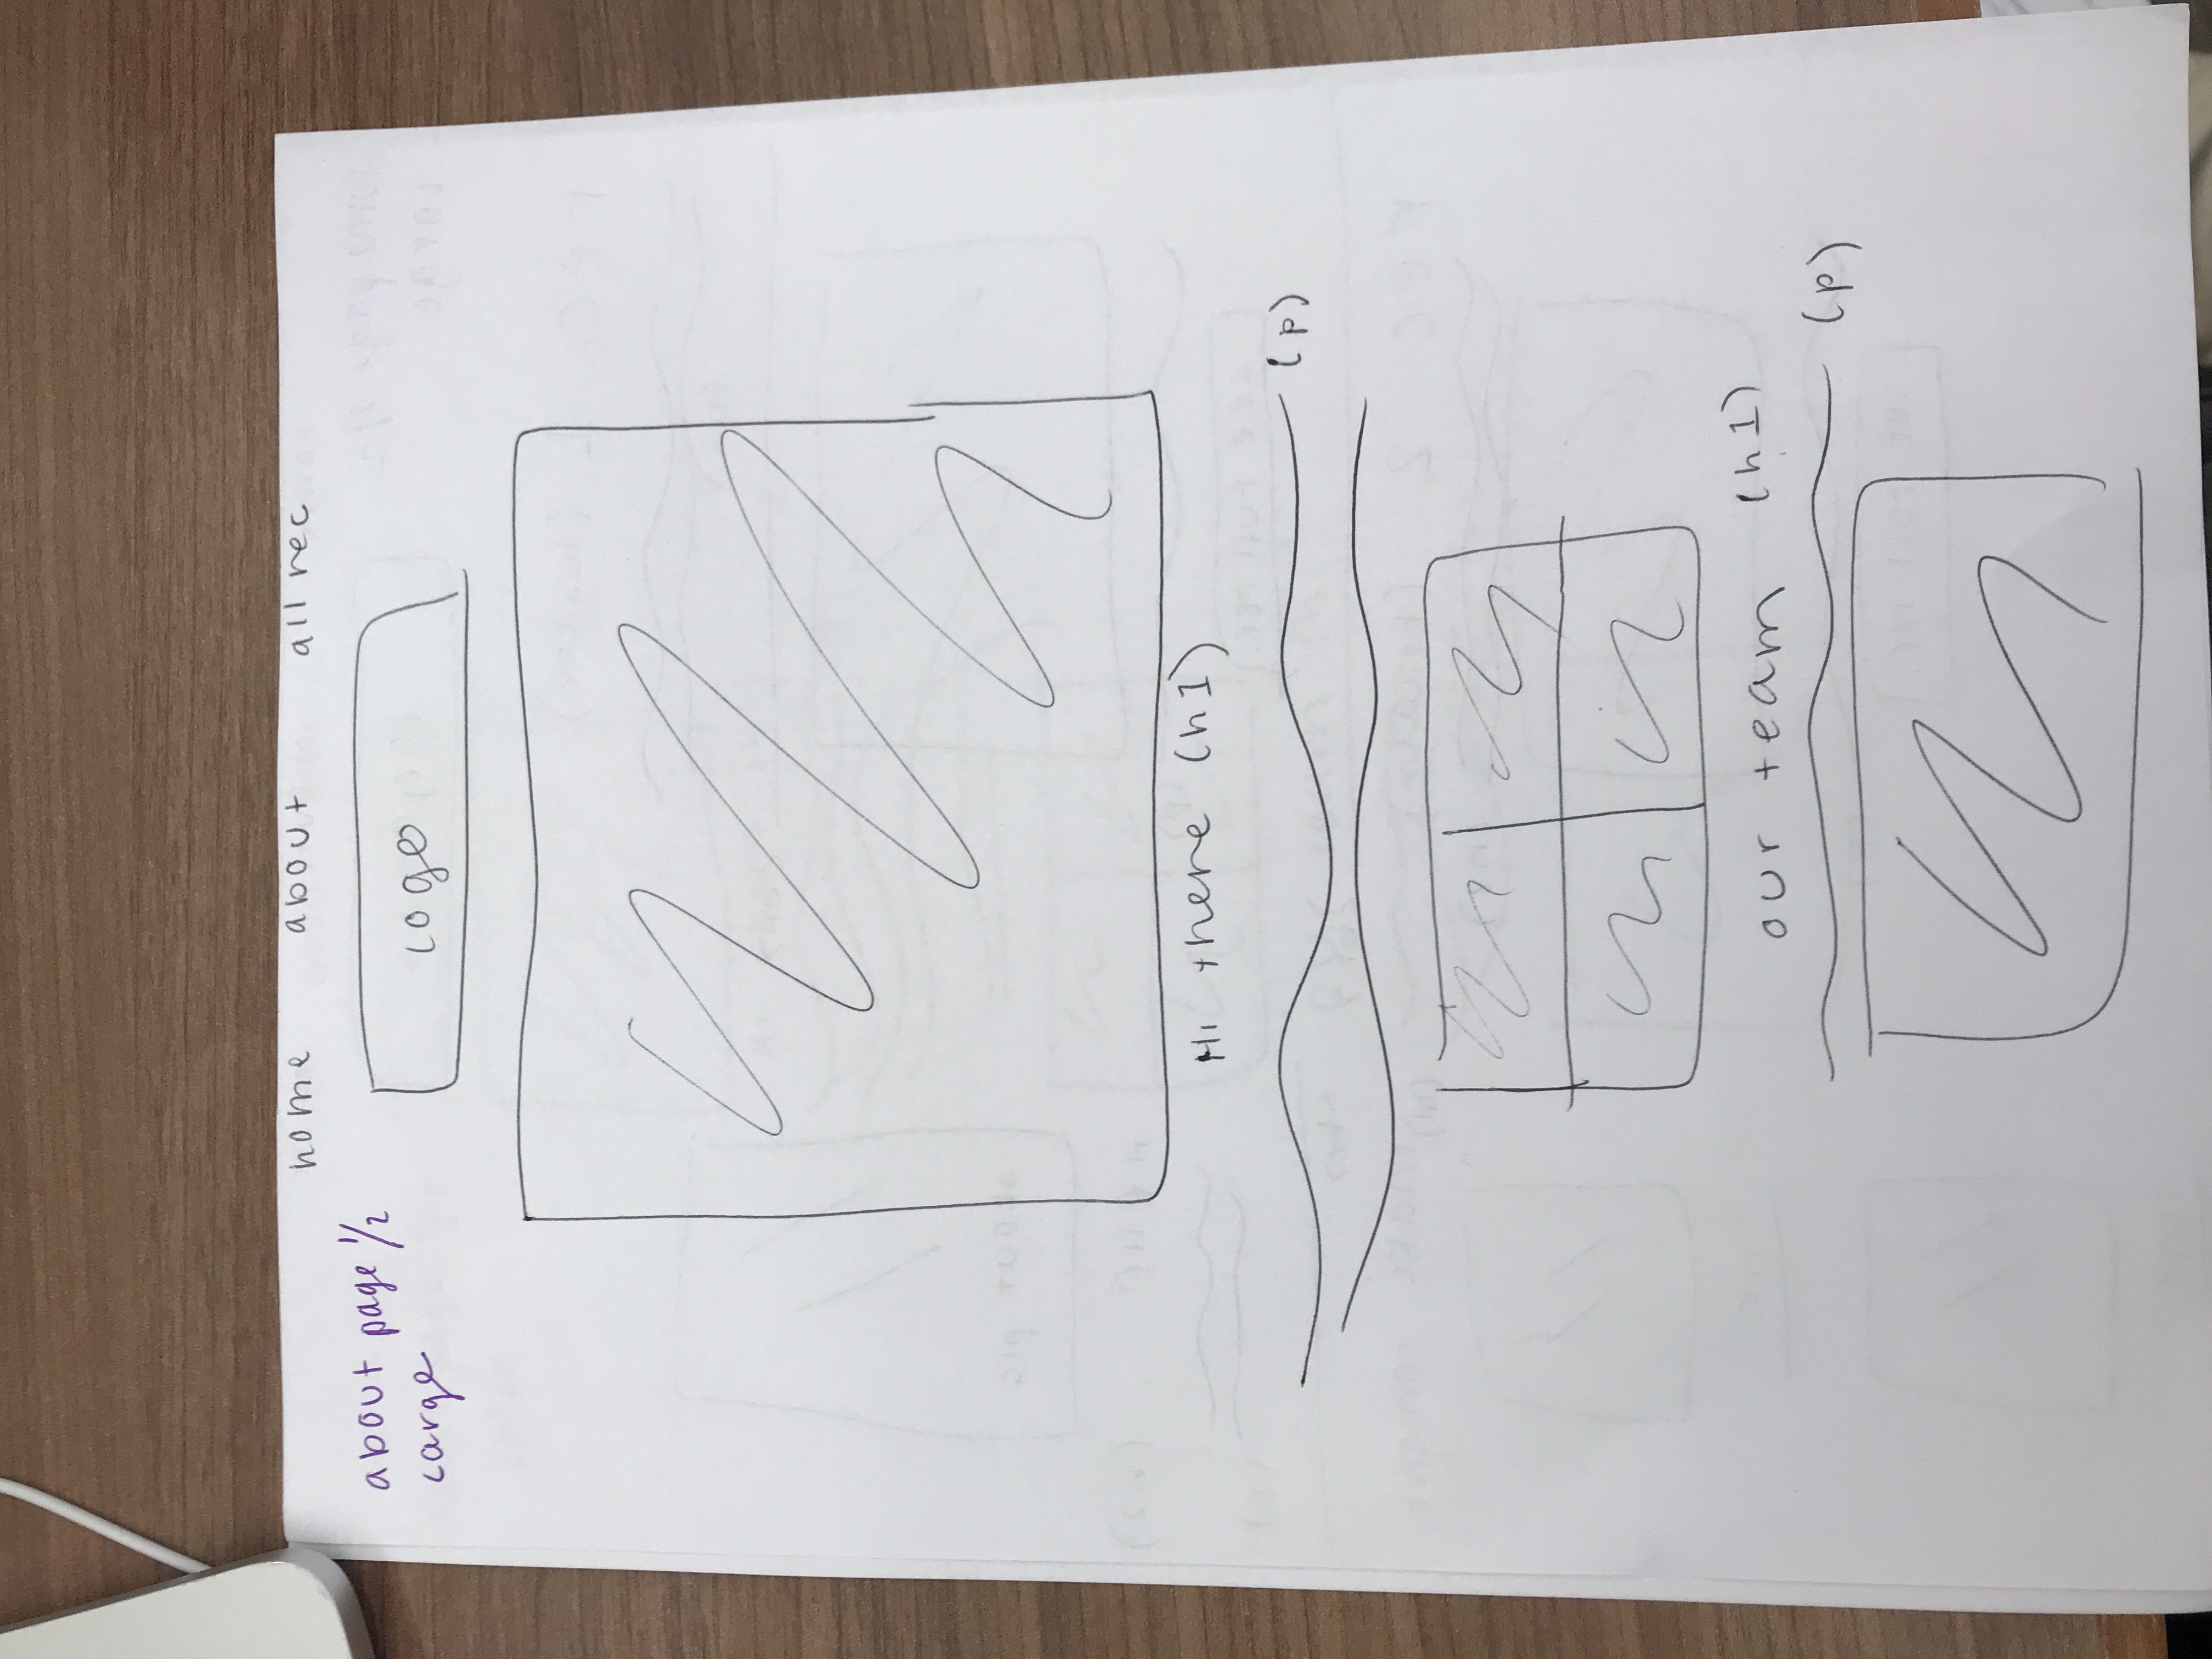 home about all rec
about page 1/2
Large
Logo
Hi there (h1)
(p)
our team (h1)
(p)